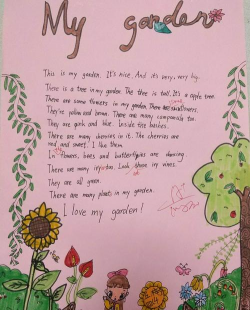 My garden
This is my garden. It's nice. And it's very, very big.
There is a tree in my garden. The tree is tall. It's apple tree.
There are some flowers in my garden. There are flowers.
They're yellow and brown. There are many
They are pink and blue. Inside the bushes.
There are many cherries in it. The cherries are
red and sweet. I like them.
In flowers, bees and butterflies are dancing.
There are many in Look there vines.
They are all green.
There are many plants in my garden.
I love my garden!